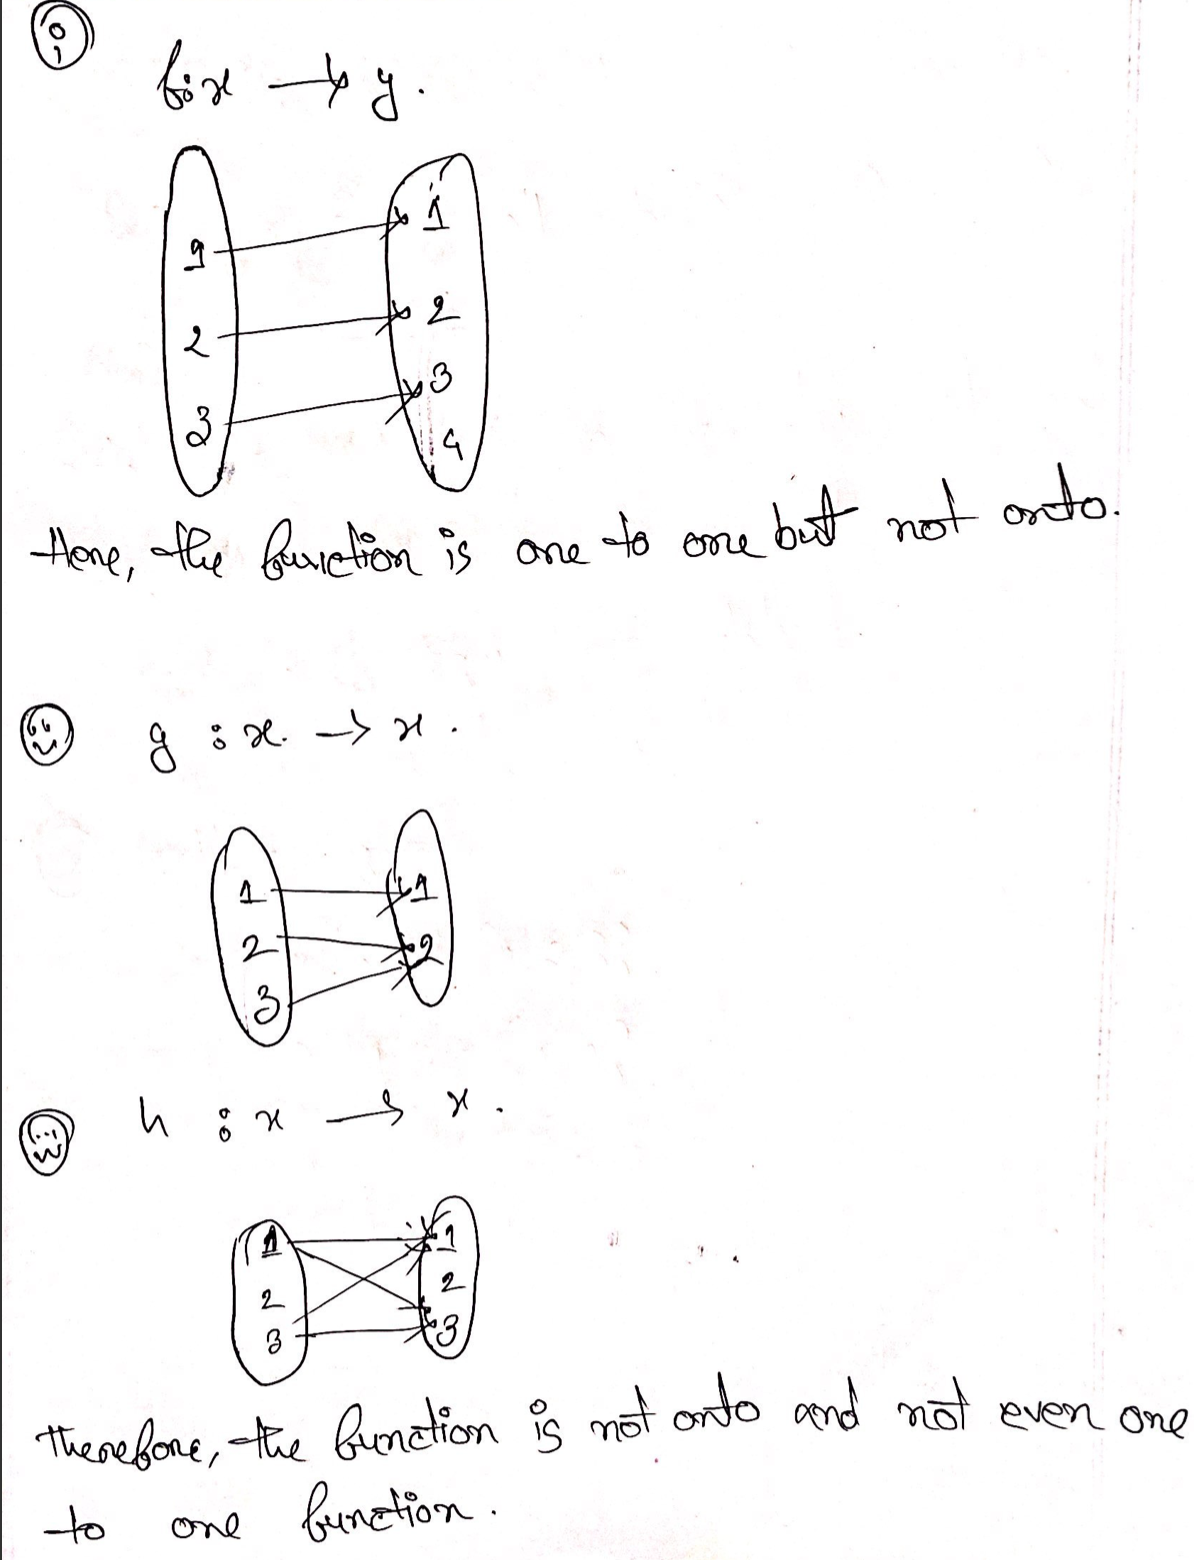 i
f : x → y.
1 1
2 2
3 3
4
Here, the function is one to one but not onto.
ii g : x → x.
1 1
2 2
3
iii h : x → x.
1 1
2 2
3 3
Therefore, the function is not onto and not even one
to one function.